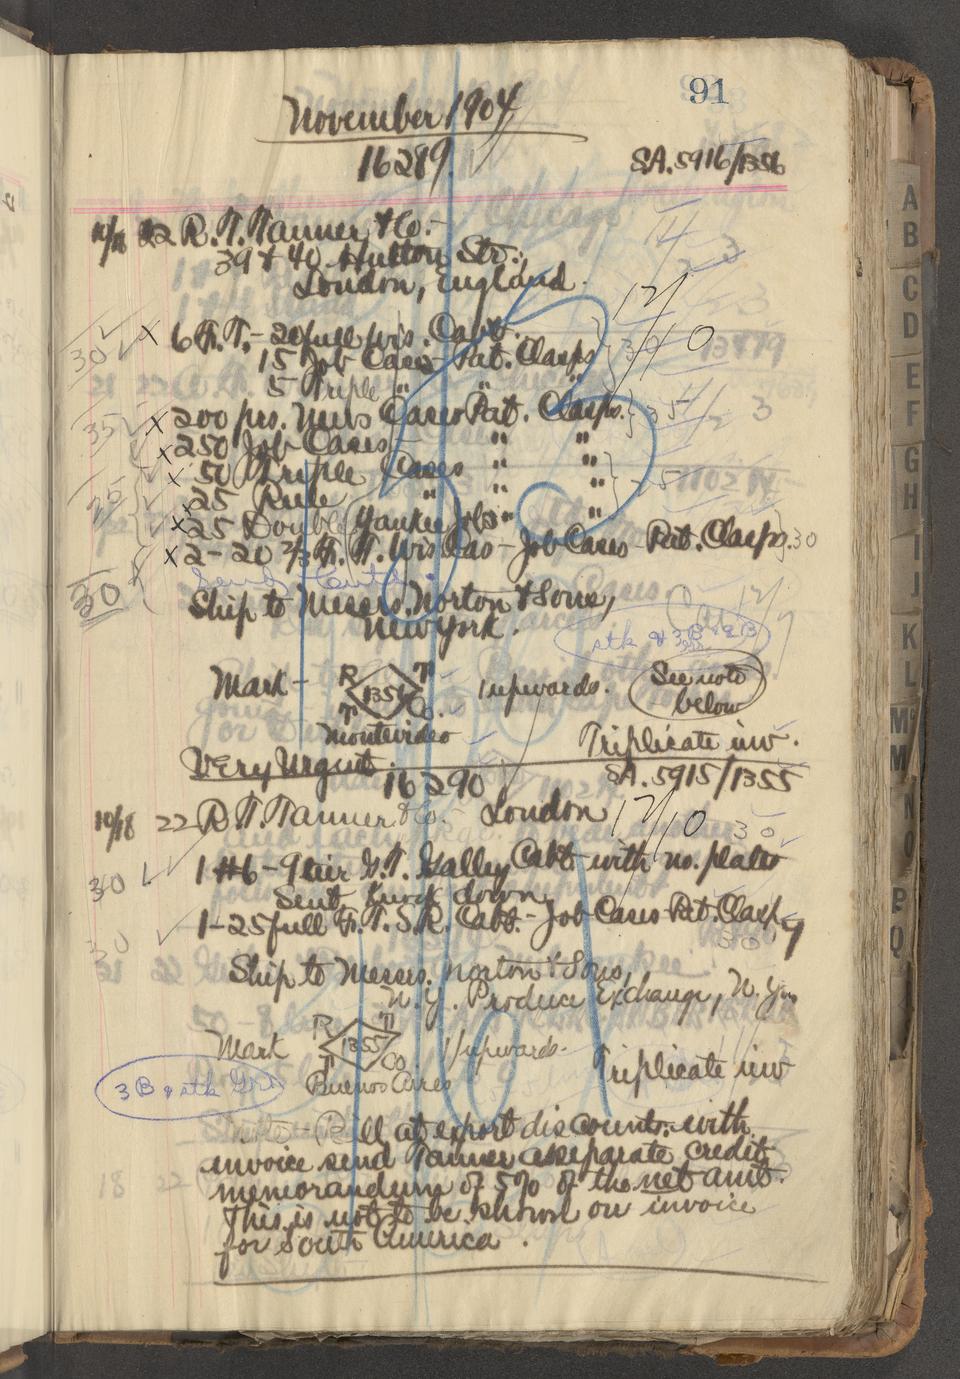 91
November 1904
16289.
SA. 5916/1356
22 R. T. Tanner & Co.
39 & 40 Hutton Str.,
London, England.
12/10
30 x 6 T. T. - 20 full Wis. Cabt.
15 Job Cases - Pat. Clasps } 30
5 Triple " " "
35 x 200 prs. News Cases Pat. Clasps. } 35
x 250 Job Cases " "
25 x 50 Triple Cases " " } 25
x 25 Rule " " "
x 25 Double (Yankee Job) " "
x 2 - 20 2/3 Wis Cas - Job Cases - Pat. Clasps. 30
30
Ship to Messrs. Norton & Sons,
New York.
stk & 3B & 2B
Mark - R T 1356 T Co. 1 upwards. See note
below
Montevideo
Triplicate inv.
Very Urgent.
16290
SA. 5915/1355
10/18 22 R. T. Tanner & Co. London 12/10 30
30 1 #6 - 9 tier G. T. Galley Cabt with no. plates
Sent Knock down
30 1 - 25 full S. R. Cabt. - Job Cases Pat. Clasps
30
Ship to Messrs. Norton & Sons,
N. Y. Produce Exchange, N. Y.
Mark R T 1355 T Co 1/upwards - Triplicate inv
Buenos Aires
3 B & stk
Note - Bill at export discounts: with
invoice send Tanner a separate credit
memorandum of 5% of the net amt.
This is not to be shown on invoice
for South America.
A
B
C
D
E
F
G
H
I
J
K
L
M
M
N
O
P
Q